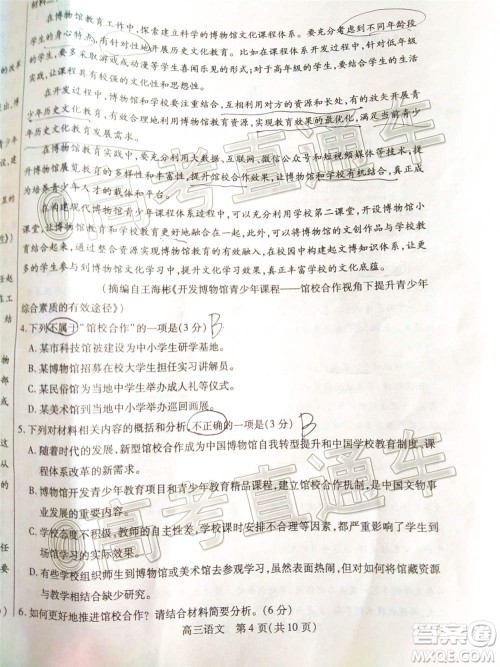 材料二：
在博物馆教育工作中，探索建立科学的博物馆文化课程体系。要充分考虑到不同年龄段
学生的身心特点，有针对性地开展历史文化教育。比如在课程体系开发过程中，针对低年级
学生，要多使用游戏或动漫等学生喜闻乐见的形式，有趣味性；对于高年级的学生，要尽可能
让这些课程具有一定的文化性和思想性。
在开发过程中，博物馆和学校要充分接触，相互利用对方的资源和长处，有的放矢开展青
少年历史文化教育，有效合理地利用博物馆资源，实现教育效果的最优化，满足青少年学生对
历史文化教育的需求。
在博物馆教育实践中，要充分利用大数据、互联网、微信微博和短视频超文本等传播媒介，
提升博物馆展览教育的多样性和丰富性，提升教育效果，让博物馆和学校有机结合，共同承担
培养青少年人才的任务和使命。
在构建现代博物馆青少年课程体系过程中，应充分利用学校第二课堂，开设博物馆
，使博物馆教育和学校教育更好地融合在一起，实现博物馆的体验式教育和学校的
教育结合。在这个过程中，要不断挖掘和提升课程的文化内涵，构建文博知识体系，让更多
走进博物馆，感受到博物馆文化的丰富性和中华文化的底蕴。
（摘编自王海彬《开发博物馆青少年课程——馆校合作视角下提升青少年
综合素质的有效途径》）
4. 下列不属于“馆校合作”的一项是(3 分) B
A. 某市科技馆被设为中小学生研学基地。
B. 某博物馆招募在校大学生担任实习讲解员。
C. 某民俗馆为当地中学生举办成人礼等仪式。
D. 某美术馆到当地中小学举办巡回画展。
5. 下列对材料相关内容的概括和分析，不正确的一项是(3 分) B
A. 随着时代的发展，新型馆校合作成为中国博物馆自我转型提升和中国学校教育制度、课
程体系改革的新需求。
B. 博物馆开发青少年教育项目和青少年教育精品课程，建立馆校合作机制，是中国文物事
业发展的重要内容。
C. 馆校合作缺乏自主性、灵活性、差异性，学校课程时间安排不合理等问题影响了学生到博
物馆学习的效果。
D. 有些学校组织师生到博物馆或美术馆等地方去参观学习，虽然新颖热闹，但走马观花，缺
乏文化味和趣味性。
6. 如何更好地推进馆校合作？请结合材料简要分析。(6 分)
高三语文 第 4 页(共 10 页)
高考直通车
高考直通车